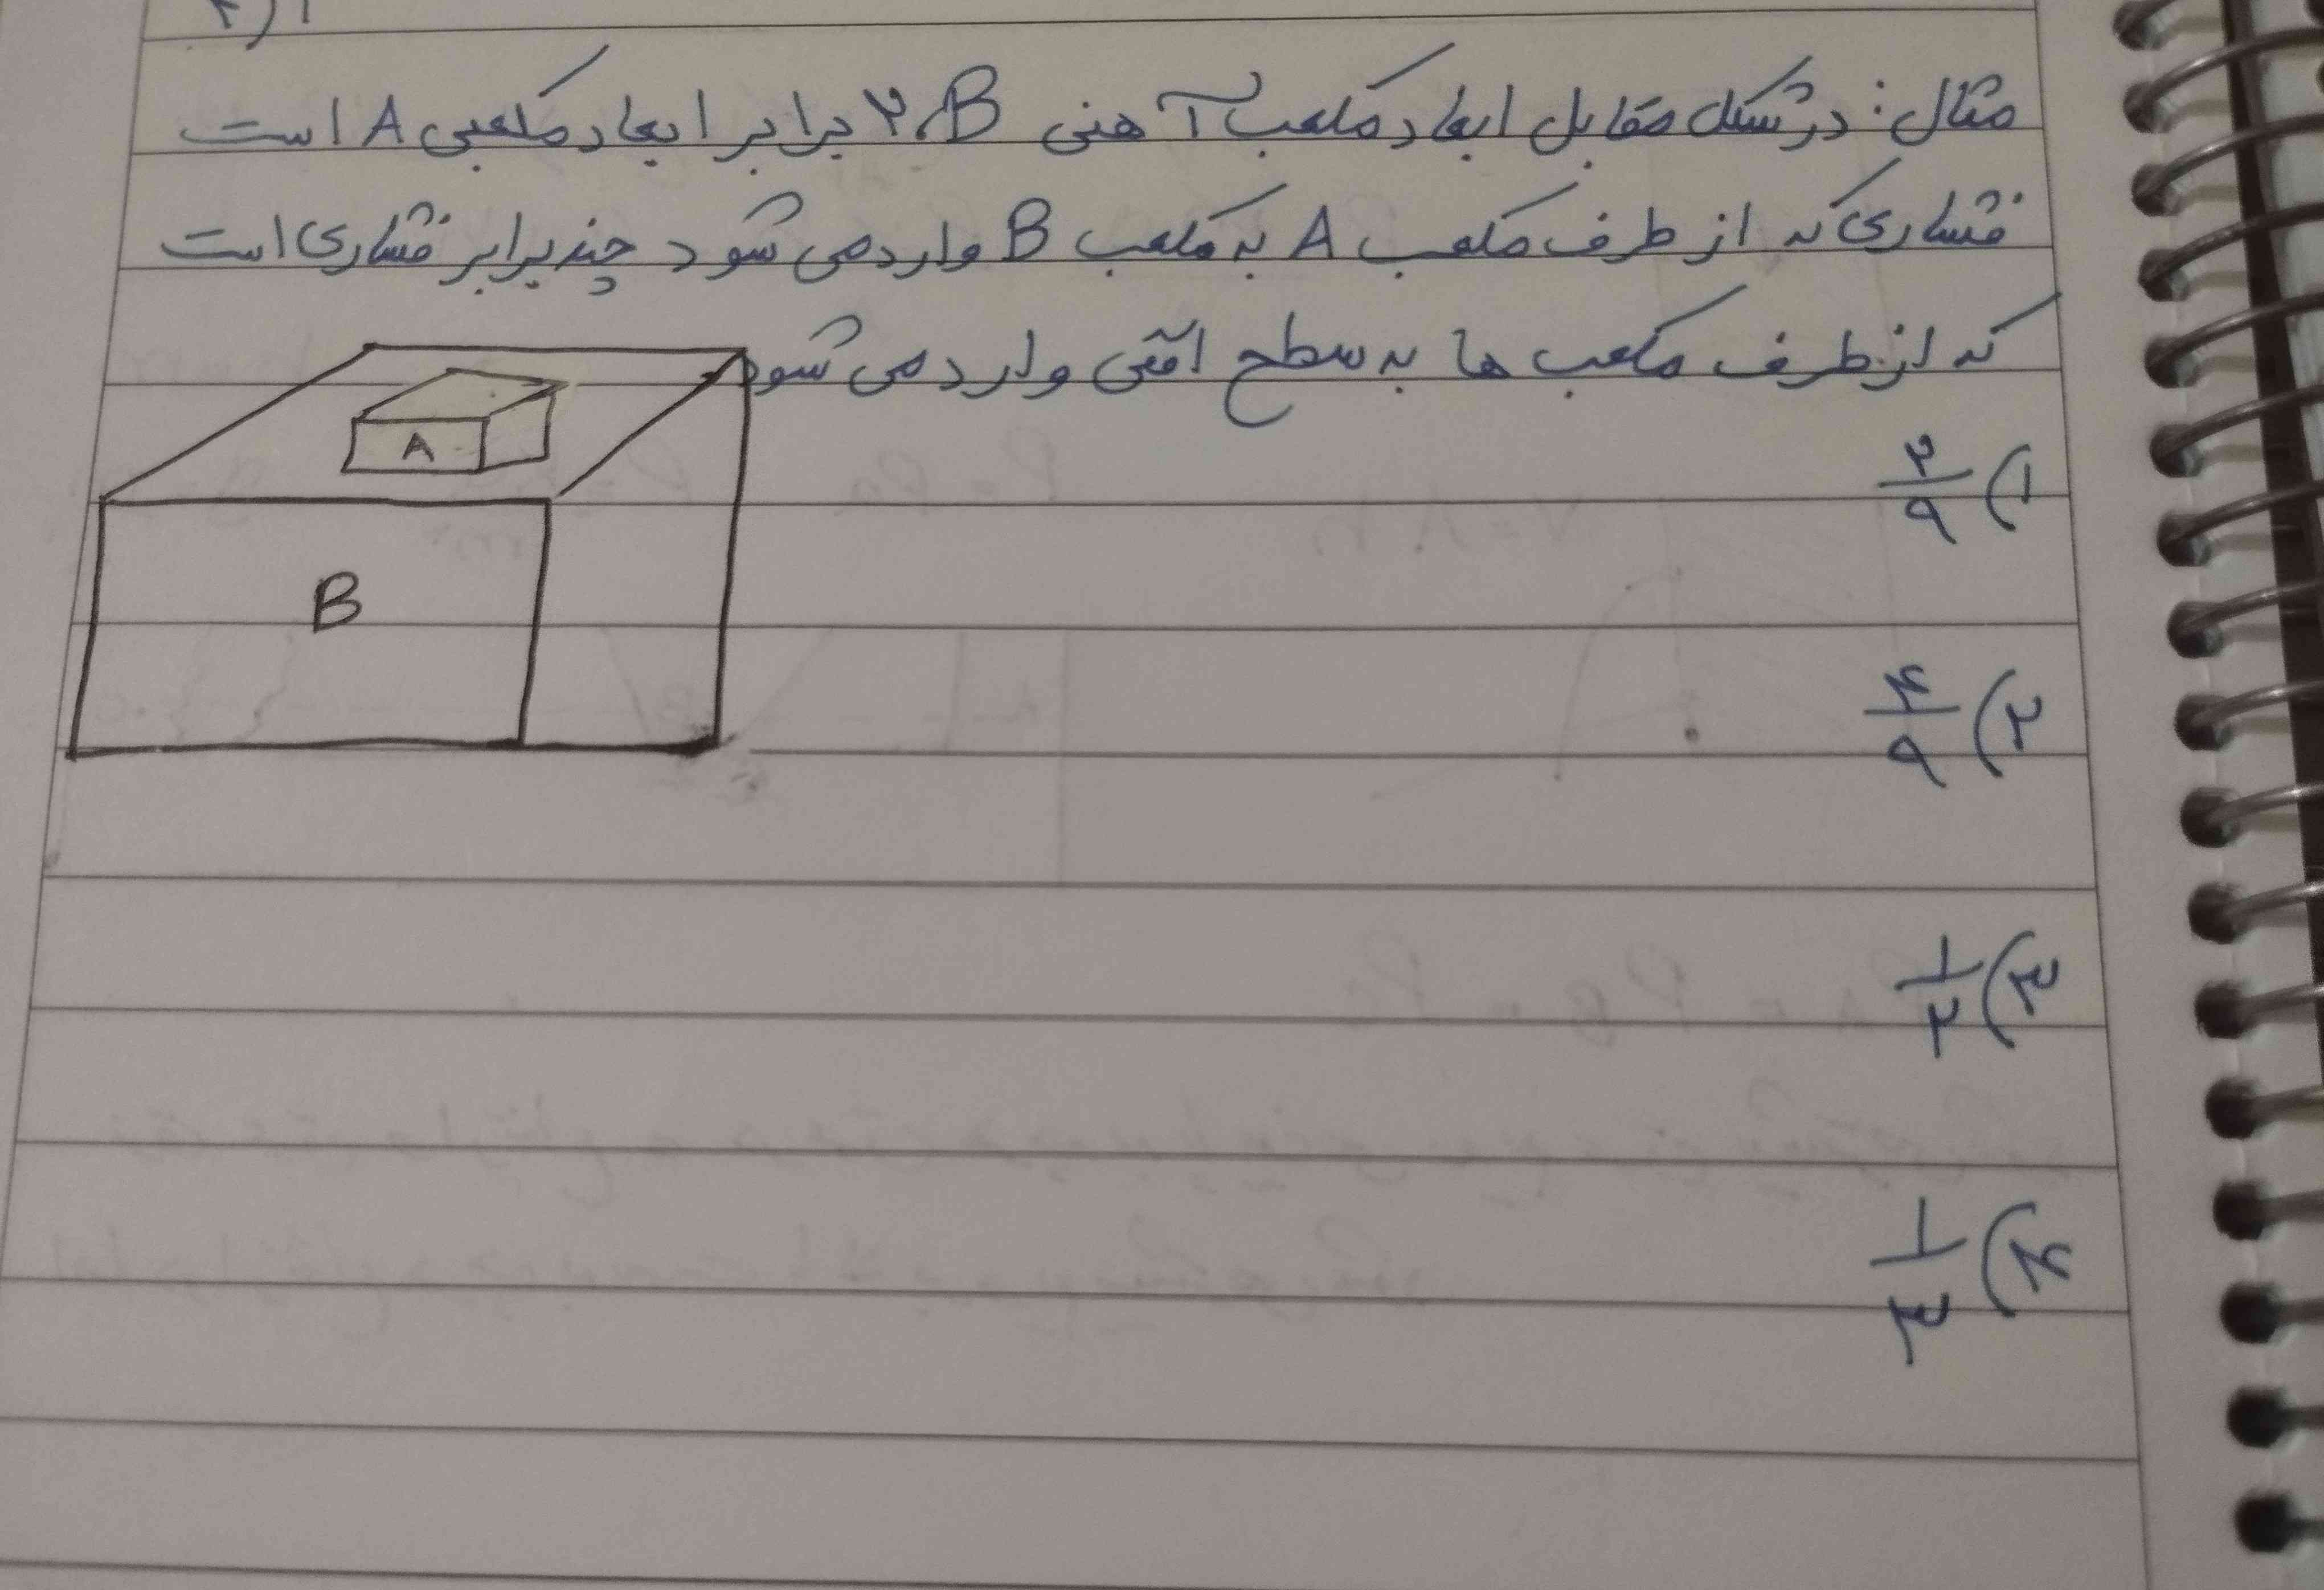 مثال: در شکل مقابل ابعاد مکعب آهنی B، ۲ برابر ابعاد مکعبی A است
فشاری که از طرف مکعب A به مکعب B وارد می شود چند برابر فشاری است
که از طرف مکعب ها به سطح افقی وارد می شود
A
B
۱) ۲/۹
۲) ۴/۹
۳) ۱/۲
۴) ۱/۳